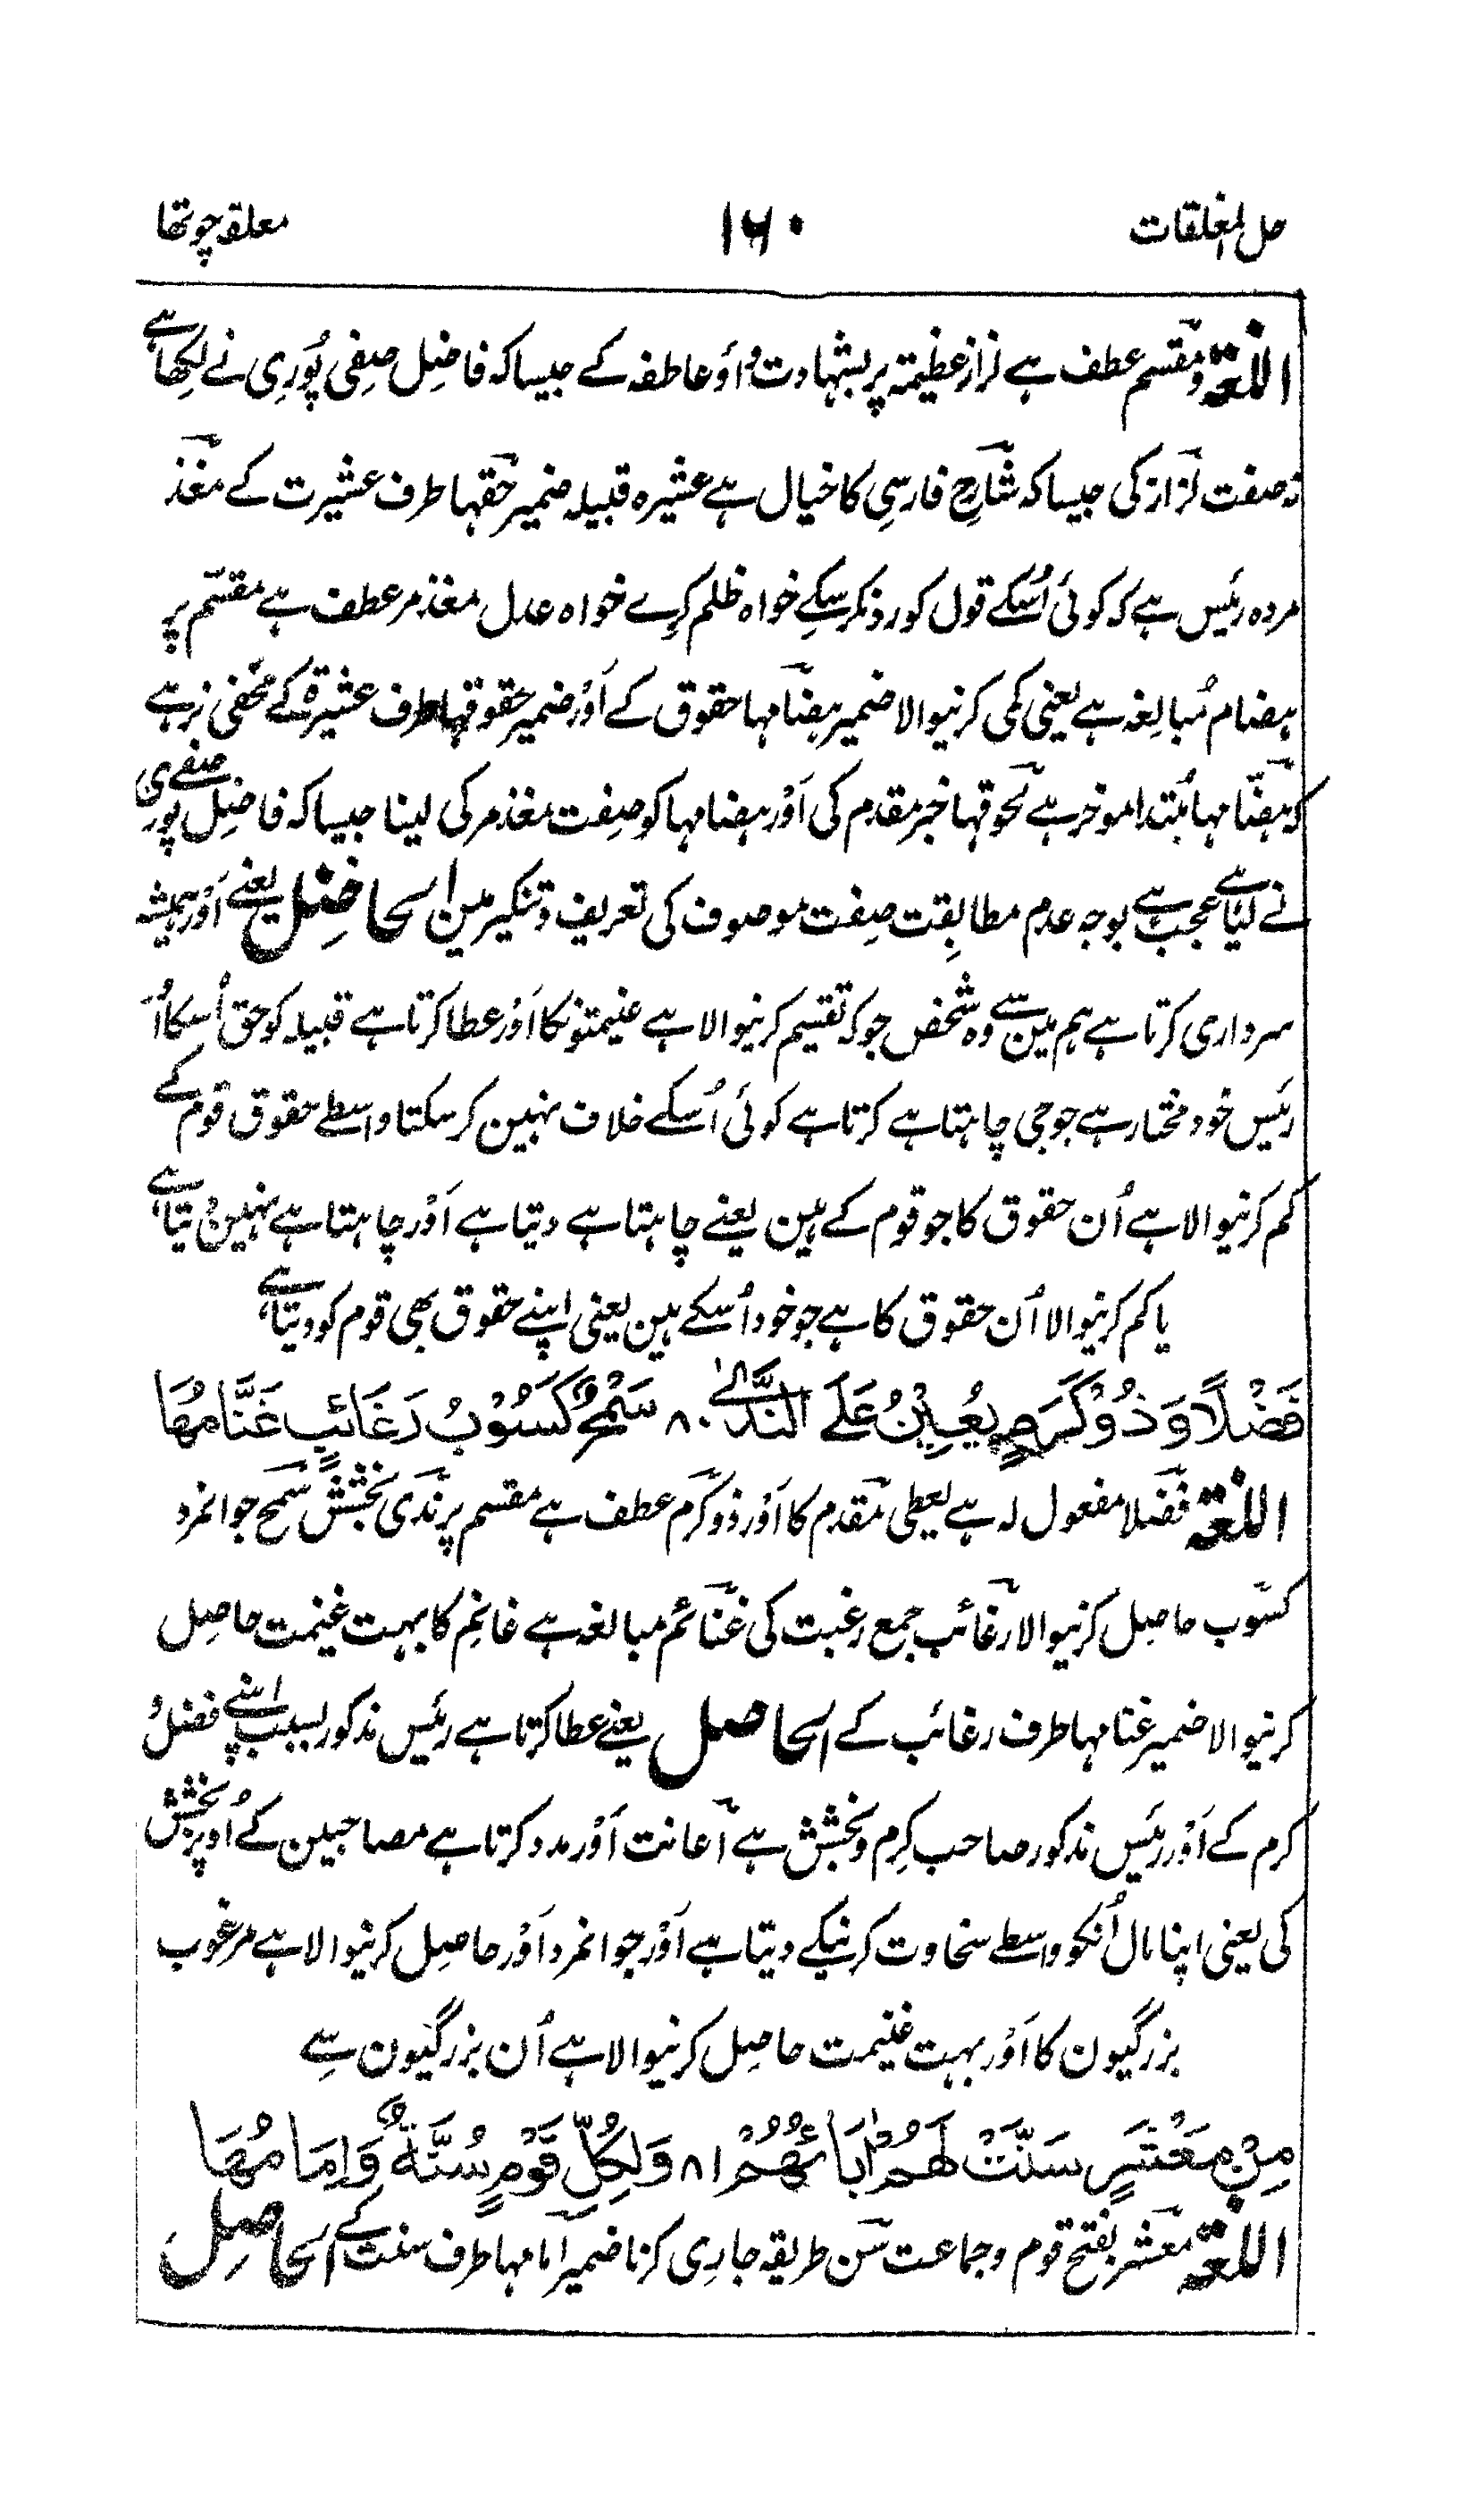 حل المغلقات ۱۶۰ معلقہ چوتھا
اللغۃ و مقسم عطف ہے لزاز عظیمۃ پر بشہادت واؤ عاطفہ کے جیسا کہ فاضِل صِفی پُورِی نے لِکھا ہے
نہ صفت لزاز کی جیسا کہ شارح فارسِی کا خیال ہے عشیرہ قبیلہ ضمیر حقہا طرف عشیرت کے مغذ
مر وہ رئیس ہے کہ کوئی اُسکے قول کو رد نکر سکے خواہ ظلم کرے خواہ عدل مغذمر عطف ہے مقسّم پر
ہضام مُبالِغہ ہے یعنی کمی کرنیوالا ضمیر ہضامہا حقوق کے اَوْر ضمیر حقوقہا طرف عشیرۃ کے مخفی نرہے
کہ ہضّامہا مُبتدا موخر ہے لحقوقہا خبر مقدم کی اَوْر ہضامہا کو صِفت مغذمر کی لینا جیسا کہ فاضِل صفے پوری
نے لیا ہے عجب ہے بوجہ عدم مطابِقت صِفت موصوف کی تعریف و تنکیر مین الحاصِل یعنے اَوْر ہمیشہ
سرداری کرتا ہے ہم مین سے وہ شخص جو کہ تقسیم کرنیوالا ہے غنیمتونکا اَوْر عطا کرتا ہے قبیلہ کو حق اُسکا اُ
رئیس خود مختار ہے جو جی چاہتا ہے کرتا ہے کوئی اُسکے خلاف نہین کر سکتا واسطے حقوق قوم کے
کم کرنیوالا ہے اُن حقوق کا جو قوم کے ہین یعنے چاہتا ہے دیتا ہے اَوْر چاہتا ہے نہین دیتا ہے
یا کم کرنیوالا اُن حقوق کا ہے جو خود اُسکے ہین یعنی اپنے حقوق بھی قوم کو دیتا ہے
فَضْلًا وَذُوْ كَرَمٍ يُعِيْنُ عَلَى النَّدٰى ۸۰ سَمْحٌ كَسُوْبُ رَغَائِبٍ غَنَّامُهَا
اللغۃ فضلا مفعول لہ ہے یعطی مقدم کا اَوْر ذوکرم عطف ہے مقسم پر ندی بخشش سمح جوانمرد
کسّوب حاصِل کرنیوالا رغائب جمع رغبت کی غنائم مبالغہ ہے غانِم کا بہت غنیمت حاصِل
کرنیوالا ضمیر غنامہا طرف رغائب کے الحاصل یعنے عطا کرتا ہے رئیس مذکور بسبب اپنے فضل و
کرم کے اَوْر رئیس مذکور صاحب کرِم و بخشش ہے اعانت اَوْر مدد کرتا ہے مصاحبین کے اُوپر بخشش
کی یعنی اپنا مال اُنکو واسطے سخاوت کرنیکے دیتا ہے اَوْر جوانمرد اَوْر حاصِل کرنیوالا ہے مرغوب
بزرگیون کا اَوْر بہت غنیمت حاصِل کرنیوالا ہے اُن بزرگیون سے
مِنْ مَعْشَرٍ سَنَّتْ لَهُمْ اٰبَاءُهُمْ ۸۱ وَلِكُلِّ قَوْمٍ سُنَّةٌ وَاِمَامُهَا
اللغۃ معشر بفتح قوم و جماعت سَن طریقہ جارِی کرنا ضمیر امامہا طرف سنت کے الحاصِل